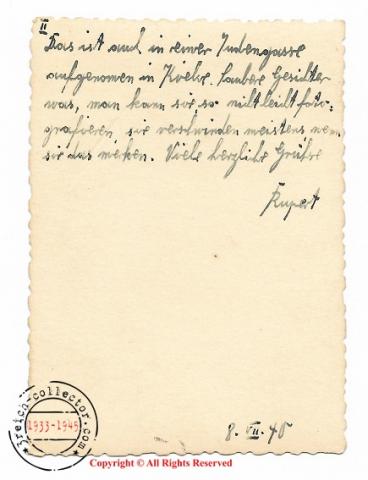 II
Das ist auch in einer Judengasse
aufgenomen in Kielce. Saubere Gesichter
was, man kann sie so nicht leicht foto-
grafieren, sie verschwinden meistens, wen
sie das merken. Viele herzliche Grüße
Rupert
8. VII. 40
3reich-collector.com
1933-1945
Copyright © All Rights Reserved